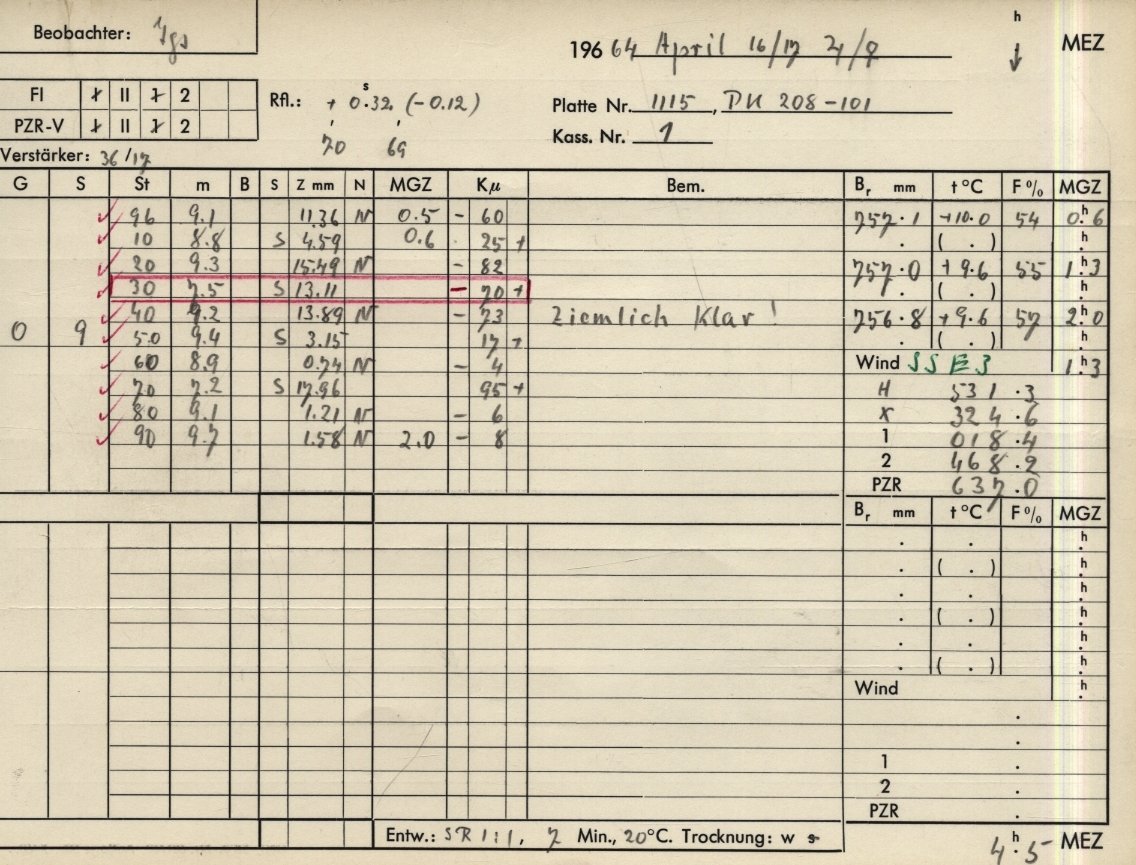 Beobachter: Igs
h
196 64 April 16/17 7/8 MEZ
FI 1 II 1 2
PZR-V 1 II 1 2
Rfl.: + 0.32 s (-0.12)
70 69
Platte Nr. 1115, PK 208-101
Kass. Nr. 1
Verstärker: 36/17
G S St m B S Z mm N MGZ Kμ Bem. Br mm t °C F % MGZ
96 9.1 11.36 N 0.5 - 60 757.1 +10.0 54 0.h6
10 8.8 S 4.59 0.6 25 + . ( . ) h.
20 9.3 15.49 N - 82 757.0 +9.6 55 1.h3
30 7.5 S 13.11 - 70 + . ( . ) h.
40 9.2 13.89 N - 73 Ziemlich Klar! 756.8 +9.6 57 2.h0
0 9 50 9.4 S 3.15 17 + . ( . ) h.
60 8.9 0.74 N - 4 Wind SSE3 1.h3
70 7.2 S 17.96 95 + H 531.3
80 9.1 1.21 N - 6 X 324.6
90 9.7 1.58 N 2.0 - 8 1 018.4
2 468.2
PZR 637.0
Br mm t °C F % MGZ
. . h.
. ( . ) h.
. . h.
. ( . ) h.
. . h.
. ( . ) h.
Wind h.
.
.
1 .
2 .
PZR .
Entw.: SR 1:1, 7 Min., 20°C. Trocknung: w s
4.h5 MEZ